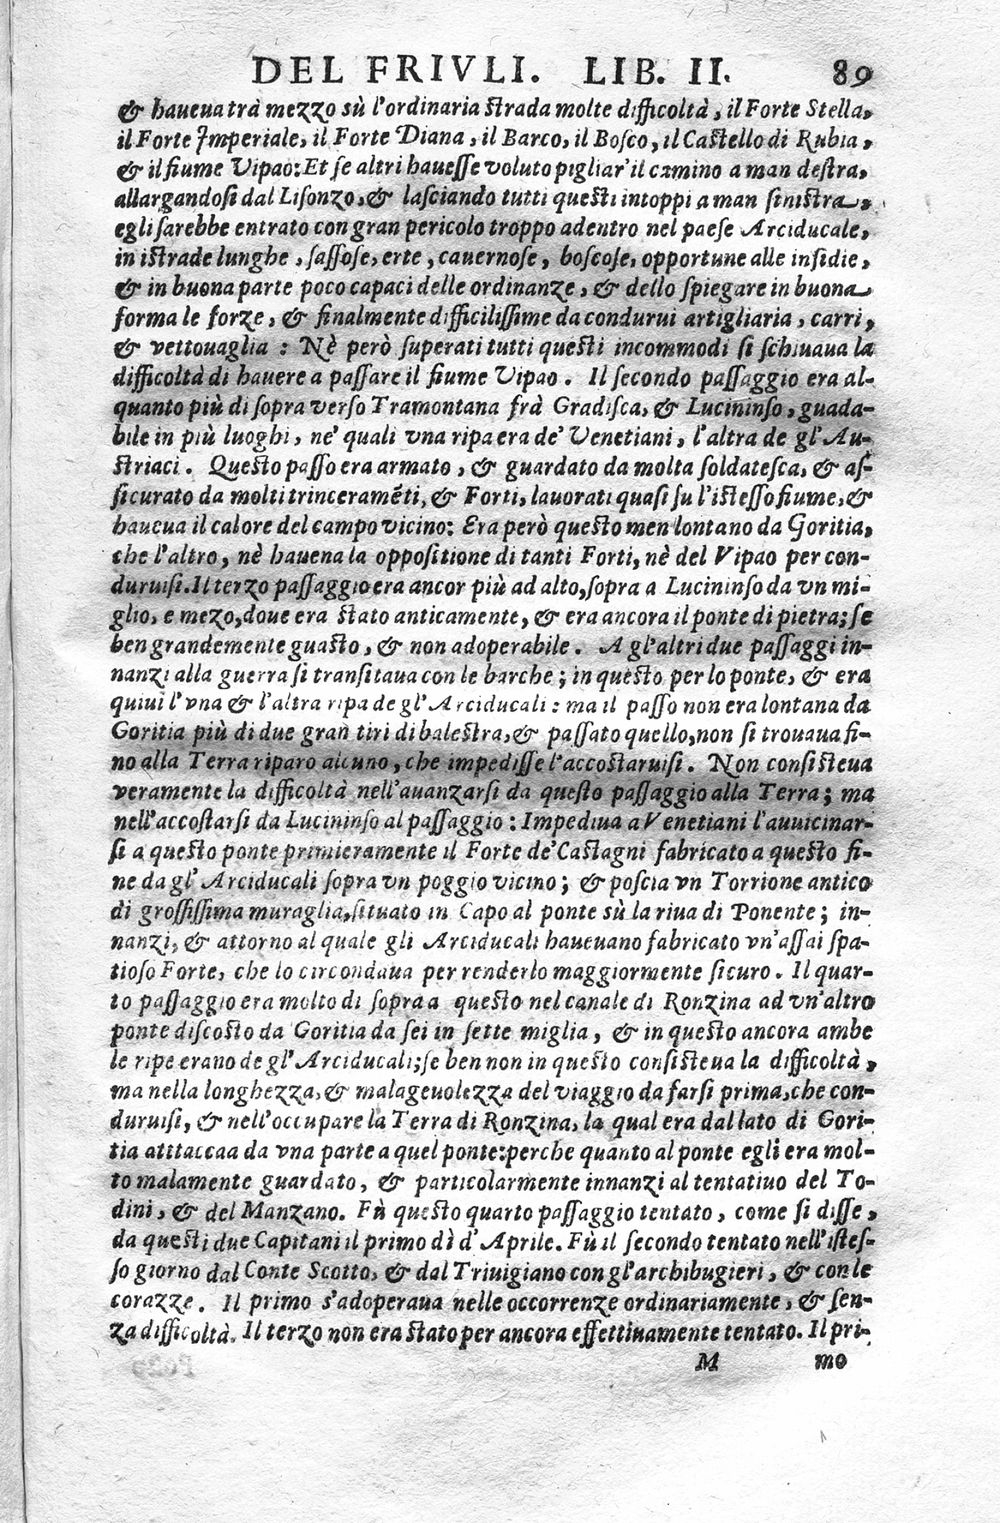 DEL FRIVLI. LIB. II. 89
& haueua trà mezzo sù l'ordinaria strada molte difficoltà, il Forte Stella,
il Forte Imperiale, il Forte Diana, il Barco, il Bosco, il Castello di Rubia,
& il fiume Vipao: Et se altri hauesse voluto pigliar' il camino a man destra,
allargandosi dal Lisonzo, & lasciando tutti questi intoppi a man sinistra,
egli sarebbe entrato con gran pericolo troppo adentro nel paese Arciducale,
in istrade lunghe, sassose, erte, cauernose, boscose, opportune alle insidie,
& in buona parte poco capaci delle ordinanze, & dello spiegare in buona
forma le forze, & finalmente difficilissime da condurui artigliaria, carri,
& vettouaglia : Nè però superati tutti questi incommodi si schiuaua la
difficoltà di hauere a passare il fiume Vipao. Il secondo passaggio era al-
quanto più di sopra verso Tramontana frà Gradisca, & Lucininso, guada-
bile in più luoghi, ne' quali vna ripa era de' Venetiani, l'altra de gl'Au-
striaci. Questo passo era armato, & guardato da molta soldatesca, & as-
sicurato da molti trinceramẽti, & Forti, lauorati quasi su l'istesso fiume, &
haueua il calore del campo vicino: Era però questo men lontano da Goritia,
che l'altro, nè hauena la oppositione di tanti Forti, nè del Vipao per con-
duruisi. Il terzo passaggio era ancor più ad alto, sopra a Lucininso da vn mi-
glio, e mezo, doue era stato anticamente, & era ancora il ponte di pietra; se
ben grandemente guasto, & non adoperabile. A gl'altri due passaggi in-
nanzi alla guerra si transitaua con le barche; in questo per lo ponte, & era
quiui l'vna & l'altra ripa de gl'Arciducali: ma il passo non era lontana da
Goritia più di due gran tiri di balestra, & passato quello, non si trouaua fi-
no alla Terra riparo alcuno, che impedisse l'accostaruisi. Non consisteua
veramente la difficoltà nell'auanzarsi da questo passaggio alla Terra; ma
nell'accostarsi da Lucininso al passaggio: Impediua a Venetiani l'auuicinar-
si a questo ponte primieramente il Forte de' Castagni fabricato a questo fi-
ne da gl' Arciducali sopra vn poggio vicino; & poscia vn Torrione antico
di grossissima muraglia, situato in Capo al ponte sù la riua di Ponente; in-
nanzi, & attorno al quale gli Arciducali haueuano fabricato vn'assai spa-
tioso Forte, che lo circondaua per renderlo maggiormente sicuro. Il quar-
to passaggio era molto di sopra a questo nel canale di Ronzina ad vn'altro
ponte discosto da Goritia da sei in sette miglia, & in questo ancora ambe
le ripe erano de gl'Arciducali; se ben non in questo consisteua la difficoltà,
ma nella longhezza, & malageuolezza del viaggio da farsi prima, che con-
duruisi, & nell'occupare la Terra di Ronzina, la qual era dal lato di Gori-
tia atttaccaa da vna parte a quel ponte: perche quanto al ponte egli era mol-
to malamente guardato, & particolarmente innanzi al tentatiuo del To-
dini, & del Manzano. Fù questo quarto passaggio tentato, come si disse,
da questi due Capitani il primo dì d'Aprile. Fù il secondo tentato nell'istes-
so giorno dal Conte Scotto, & dal Triuigiano con gl'archibugieri, & con le
corazze. Il primo s'adoperaua nelle occorrenze ordinariamente, & sen-
za difficoltà. Il terzo non era stato per ancora effettiuamente tentato. Il pri-
M mo